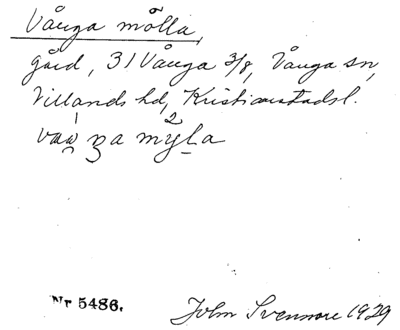 Vånga mölla,
gård, 31 Vånga 3/8, Vånga sn,
Villands hd, Kristianstadsl.
Nr 5486. John Svensson 1929